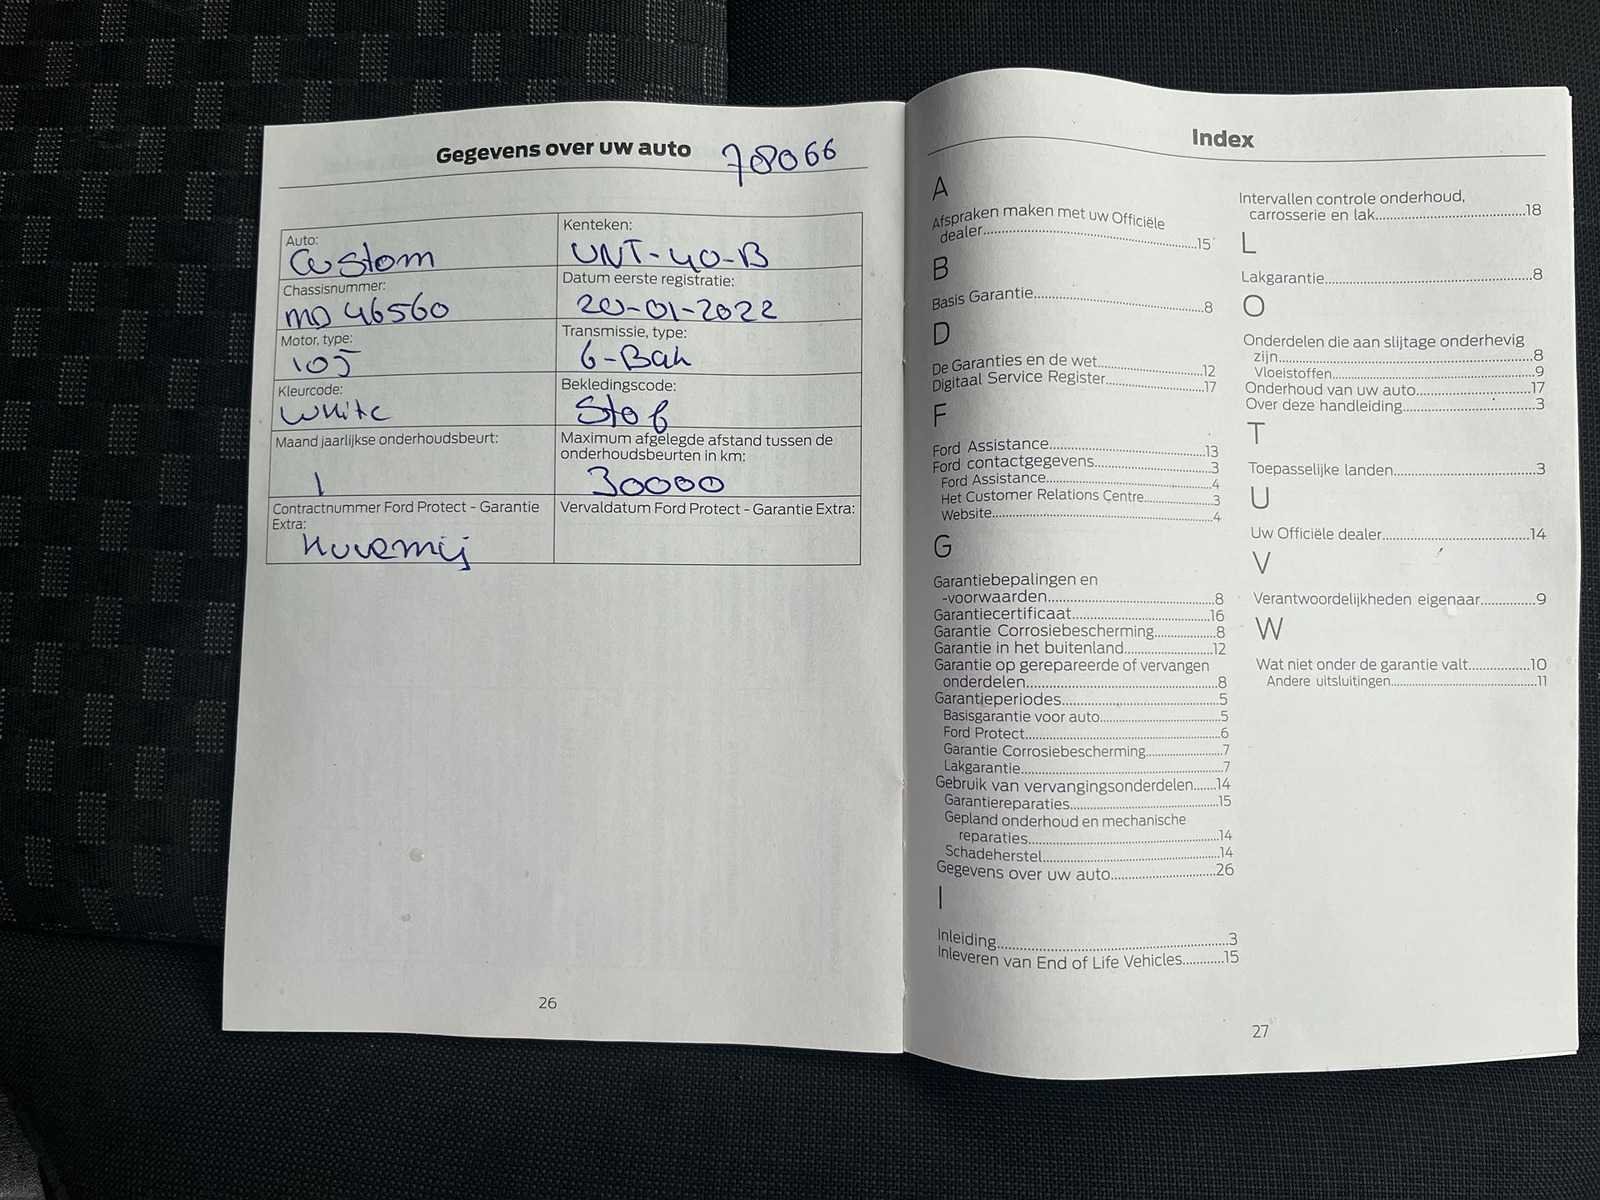 Gegevens over uw auto
78066
Auto:
Custom
Kenteken:
VNT-40-B
Chassisnummer:
MD 46560
Datum eerste registratie:
20-01-2022
Motor, type:
105
Transmissie, type:
6-Bak
Kleurcode:
White
Bekledingscode:
Stof
Maand jaarlijkse onderhoudsbeurt:
1
Maximum afgelegde afstand tussen de
onderhoudsbeurten in km:
30000
Contractnummer Ford Protect - Garantie
Extra:
Vervaldatum Ford Protect - Garantie Extra:
26
Index
A
Afspraken maken met uw Officiële
dealer...15
B
Basis Garantie...8
D
De Garanties en de wet...12
Digitaal Service Register...17
F
Ford Assistance...13
Ford contactgegevens...3
Ford Assistance...4
Het Customer Relations Centre...3
Website...4
G
Garantiebepalingen en
-voorwaarden...8
Garantiecertificaat...16
Garantie Corrosiebescherming...8
Garantie in het buitenland...12
Garantie op gerepareerde of vervangen
onderdelen...8
Garantieperiodes...5
Basisgarantie voor auto...5
Ford Protect...6
Garantie Corrosiebescherming...7
Lakgarantie...7
Gebruik van vervangingsonderdelen...14
Garantiereparaties...15
Gepland onderhoud en mechanische
reparaties...14
Schadeherstel...14
Gegevens over uw auto...26
I
Inleiding...3
Inleveren van End of Life Vehicles...15
Intervallen controle onderhoud,
carrosserie en lak...18
L
Lakgarantie...8
O
Onderdelen die aan slijtage onderhevig
zijn...8
Vloeistoffen...9
Onderhoud van uw auto...17
Over deze handleiding...3
T
Toepasselijke landen...3
U
Uw Officiële dealer...14
V
Verantwoordelijkheden eigenaar...9
W
Wat niet onder de garantie valt...10
Andere uitsluitingen...11
27